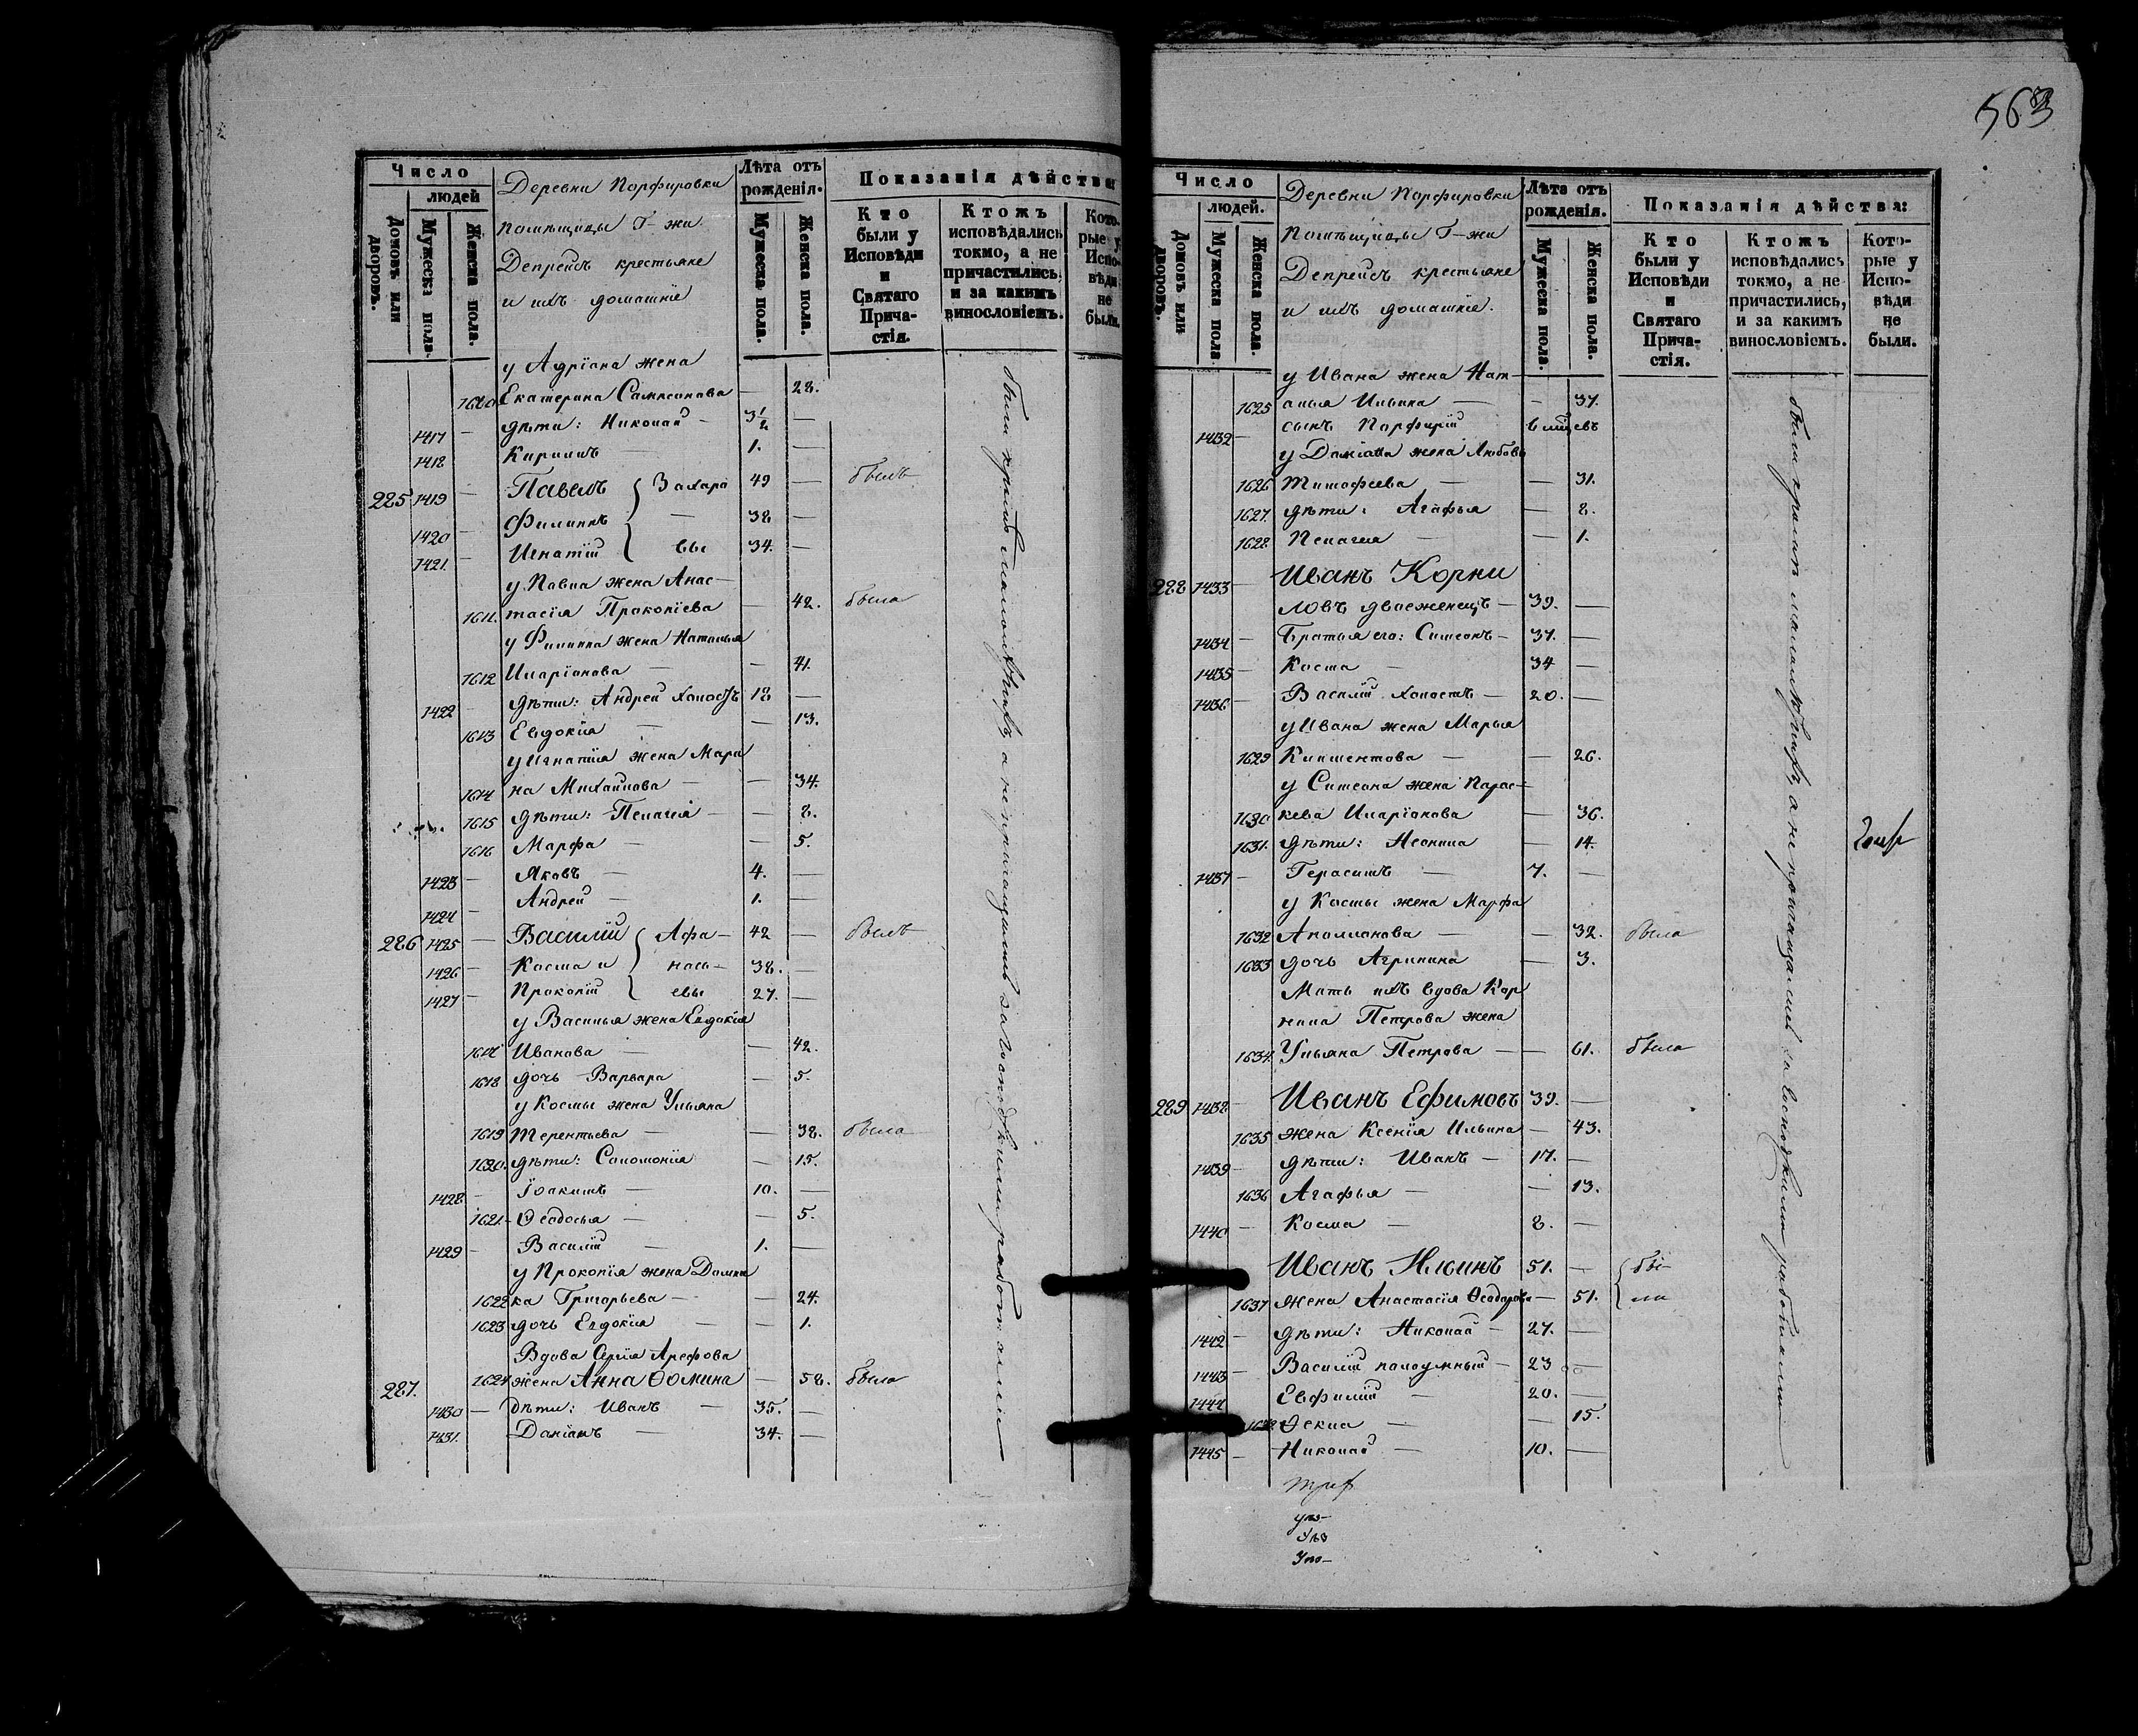 563
Число
людей
Домовъ или дворовъ.
Мужеска пола.
Женска пола.
Деревни Порфировки
помѣщицы Г-жи
Депрейсъ крестьяне
и ихъ домашніе
Лѣта отъ рожденія.
Мужеска пола.
Женска пола.
Показанія дѣйства:
Кто были у Исповѣди и Святаго Причастія.
Ктожъ исповѣдались токмо, а не причастились, и за какимъ винословіемъ.
Которые у Исповѣди не были.
у Адріана жена
1610 Екатерина Самсонова — 28.
1417 — дѣти: Николай — 3 1/2 —
1418 Кирилъ — 1. —
225 1419 — Павелъ Захаро 49 — былъ
1420 — Филиппъ — 38 —
1421. — Игнатій вы 34. —
у Павла жена Анас-
1611. тасія Прокопіева — 42. была
у Филиппа жена Наталья
1612 Иларіонова — 41.
1422 — дѣти: Андрей холостъ 18 —
1613 Евдокія — 13.
у Игнатія жена Мари
1614 на Михайлова — 34.
1615 дѣти: Пелагія — 8.
1616 Марфа — 5.
1423 — Яковъ — 4. —
1424 — Андрей — 1. —
226 1425 — Василій Афа- 42 — былъ
1426 — Косма и нась- 38. —
1427 — Прокопій евы 27. —
у Василья жена Евдокія
Иванова — 42.
1618 дочь Варвара — 5.
у Космы жена Ульяна
1619 Терентьева — 38. была
1620. дѣти: Соломонія — 15.
1428 — Іоакимъ — 10. —
1621. Ѳеодосья — 5.
1429 — Василій — 1. —
у Прокопія жена Домни
1622 ка Григорьева — 24.
1623 дочь Евдокія — 1.
Вдова Сергія Арефова
227. 1624 жена Анна Ѳомина — 58. была
1430 — дѣти: Иванъ — 35. —
1431. Даміанъ — 34. —
Число
людей.
Домовъ или дворовъ.
Мужеска пола.
Женска пола.
Деревни Порфировки
помѣщицы Г-жи
Депрейсъ крестьяне
и ихъ домашніе.
Лѣта отъ рожденія.
Мужеска пола.
Женска пола.
Показанія дѣйства:
Кто были у Исповѣди и Святаго Причастія.
Ктожъ исповѣдались токмо, а не причастились, и за какимъ винословіемъ.
Которые у Исповѣди не были.
у Ивана жена Нат-
1625 алья Ильина — 37.
1432 — сынъ Порфирій
у Даміана жена Любовь
1626 Тимофеева — 31.
1627. дѣти: Агафья — 8.
1628 Пелагія — 1.
228 1433 — Иванъ Корни
ловъ двоеженецъ — 39. —
1434 — Братья его: Симеонъ — 37. —
1435 — Косма — 34 —
1436 — Василій холостъ — 20. —
у Ивана жена Марья
1629 Климентова — 26.
у Симеона жена Парас-
1630 кева Иларіонова — 36.
1631. дѣти: Неонила — 14.
1437 — Герасимъ — 7. —
у Космы жена Марфа
1632 Аполлонова — 32. была
1633 дочь Агрипина — 3.
Мать ихъ вдова Кор
нила Петрова жена
1634. Ульяна Петрова — 61. была
229 1438 — Иванъ Ефимовъ 39. —
1635 жена Ксенія Ильина — 43.
1439 — дѣти: Иванъ — 17. —
1636 Агафья — 13.
1440 — Косма — 8. —
Иванъ Ильинъ 51. — бы-
1637 жена Анастасія Ѳеодорова — 51. ли
1442 — дѣти: Николай — 27. —
1443 — Василій полоумный — 23 —
1444 Евфимій — 20. —
Ѳекла — 15.
1445 — Николай — 10. —